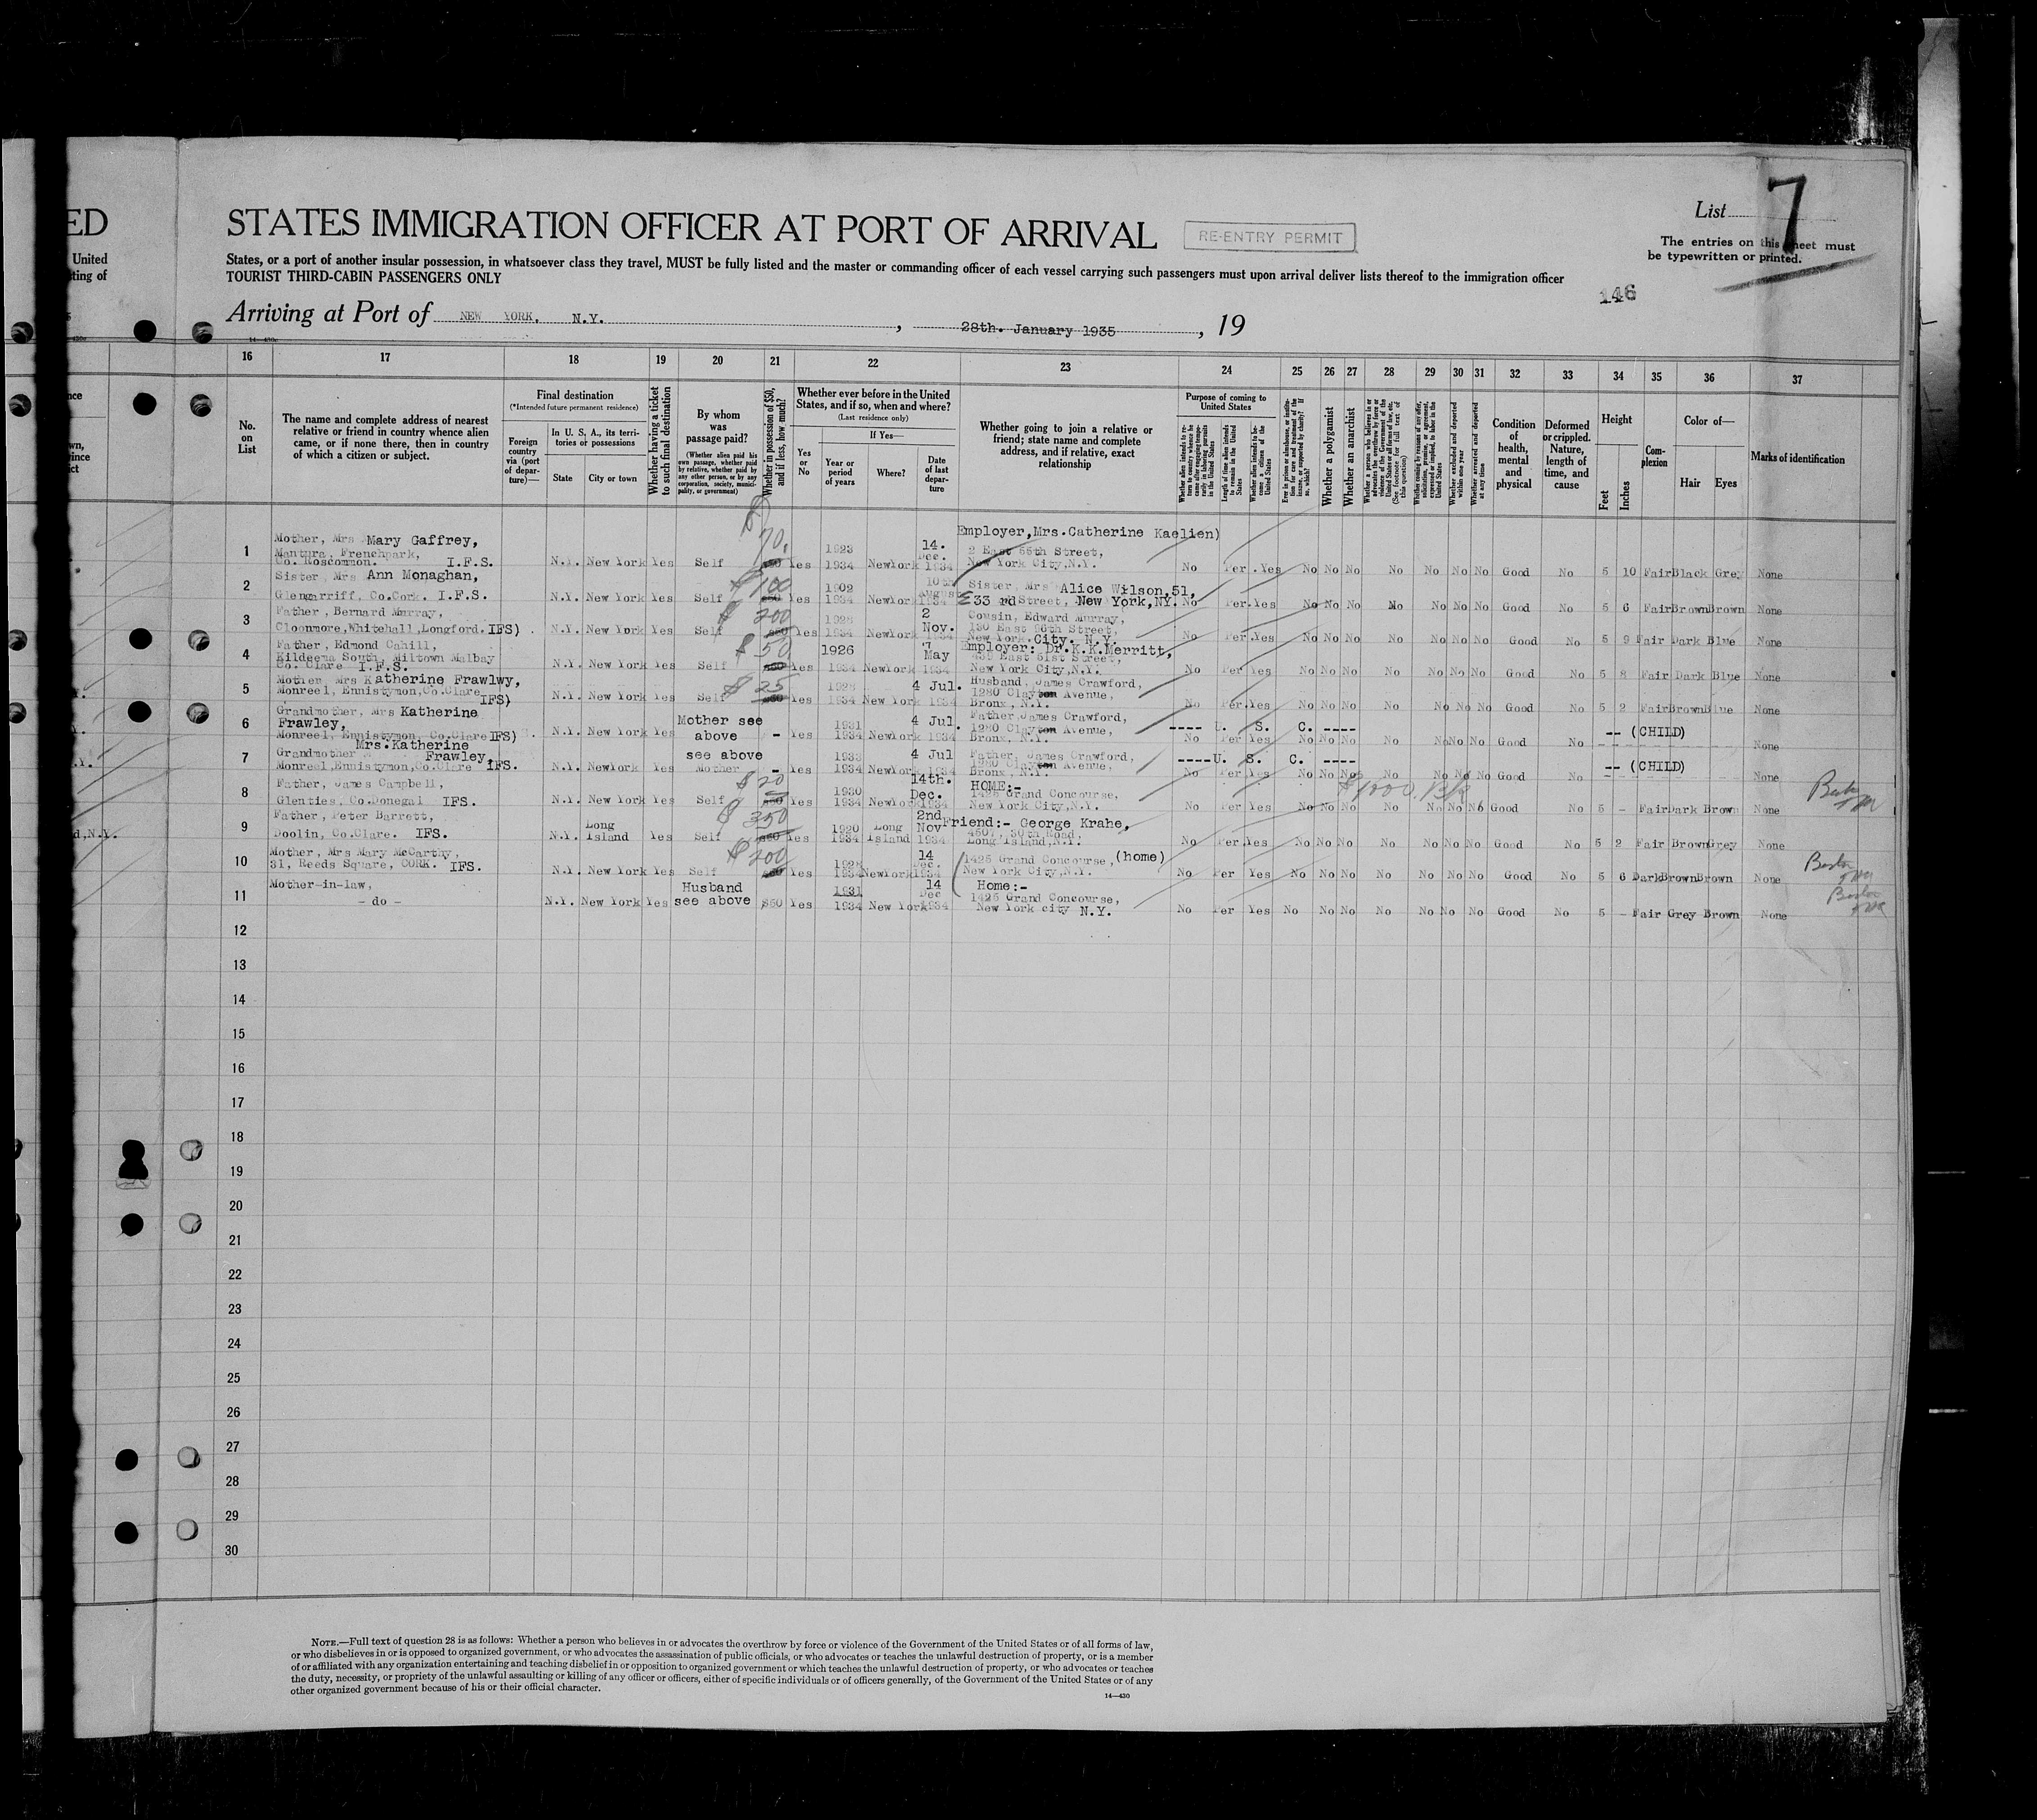 ED
United
ting of
STATES IMMIGRATION OFFICER AT PORT OF ARRIVAL
RE-ENTRY PERMIT
List 7
The entries on this sheet must
be typewritten or printed.
States, or a port of another insular possession, in whatsoever class they travel, MUST be fully listed and the master or commanding officer of each vessel carrying such passengers must upon arrival deliver lists thereof to the immigration officer
TOURIST THIRD-CABIN PASSENGERS ONLY
146
Arriving at Port of NEW YORK, N.Y. , 28th. January 1935 , 19
16 17 18 19 20 21 22 23 24 25 26 27 28 29 30 31 32 33 34 35 36 37
No. on List
The name and complete address of nearest relative or friend in country whence alien came, or if none there, then in country of which a citizen or subject.
Final destination
(*Intended future permanent residence)
Foreign country via (port of departure)—
In U. S. A., its territories or possessions
State
City or town
Whether having a ticket to such final destination
By whom was passage paid?
(Whether alien paid his own passage, whether paid by relative, whether paid by any other person, or by any corporation, society, municipality, or government)
Whether in possession of $50, and if less, how much?
Whether ever before in the United States, and if so, when and where?
(Last residence only)
Yes or No
If Yes—
Year or period of years
Where?
Date of last departure
Whether going to join a relative or friend; state name and complete address, and if relative, exact relationship
Purpose of coming to United States
Length of time alien intends to remain in the United States
Whether alien intends to become a citizen of the United States
Whether a polygamist
Whether an anarchist
Whether excluded and deported within one year
Whether arrested and deported at any time
Condition of health, mental and physical
Deformed or crippled. Nature, length of time, and cause
Height
Feet
Inches
Complexion
Color of—
Hair
Eyes
Marks of identification
1 Mother, Mrs Mary Gaffrey,
Mantura, Frenchpark,
Co. Roscommon. I.F.S. N.Y. New York Yes Self 70. Yes 1923 1934 NewYork 14. Dec. 1934
Employer, Mrs. Catherine Kaelien)
2 East 55th Street,
New York City, N.Y. No Per. Yes No No No No No No No Good No 5 10 Fair Black Grey None
2 Sister, Mrs Ann Monaghan,
Glengarriff, Co.Cork. I.F.S. N.Y. New York Yes Self $100 Yes 1902 1934 NewYork 10th August 1934
Sister, Mrs Alice Wilson, 51,
E33 rd Street, New York, NY. No Per. Yes No No No No No No No Good No 5 6 Fair Brown Brown None
3 Father, Bernard Murray,
Cloonmore, Whitehall, Longford. IFS) N.Y. New York Yes Self $200 Yes 1934 NewYork 2 Nov. 1934
Cousin, Edward Murray,
130 East 96th Street,
New York City. N.Y. No Per Yes No No No No No No No Good No 5 9 Fair Dark Blue None
4 Father, Edmond Cahill,
Kildeema South, Miltown Malbay
Co. Clare I.F.S. N.Y. New York Yes Self $50 Yes 1926 1934 NewYork May 1934
Employer: Dr.K.K.Merritt,
East 51st Street,
New York City, N.Y. No Per Yes No No No No No No No Good No 5 8 Fair Dark Blue None
5 Mother, Mrs Katherine Frawlwy,
Monreel, Ennistymon, Co.Clare IFS) N.Y. New York Yes Self $25 Yes 1934 New York 4 Jul. 1934
Husband, James Crawford,
1280 Clayton Avenue,
Bronx, N.Y. No Per. Yes No No No No No No No Good No 5 2 Fair Brown Blue None
6 Grandmother, Mrs Katherine
Frawley,
Monreel, Ennistymon, Co.Clare IFS) N.Y. New York Yes Mother see above - Yes 1931 1934 NewYork 4 Jul. 1934
Father, James Crawford,
1280 Clayton Avenue,
Bronx, N.Y. ---- U. S. C. ----
No Per Yes No No No No No No No Good No -- (CHILD) None
7 Grandmother Mrs. Katherine
Frawley,
Monreel, Ennistymon, Co.Clare IFS. N.Y. NewYork Yes see above Mother - Yes 1933 1934 NewYork 4 Jul 1934
Father, James Crawford,
1280 Clayton Avenue,
Bronx, N.Y. -----U. S. C. ----
No Per Yes No No No No No No No Good No -- (CHILD) None
8 Father, James Campbell,
Glenties, Co.Donegal IFS. N.Y. New York Yes Self $20 Yes 1930 1934 NewYork 14th. Dec. 1934
HOME:-
1425 Grand Concourse,
New York City, N.Y. $1000
No Per Yes No No No No No No No Good No 5 - Fair Dark Brown None
9 Father, Peter Barrett,
Doolin, Co.Clare. IFS. N.Y. Long Island Yes Self $350 Yes 1920 1934 Long Island 2nd Nov 1934
Friend:- George Krahe,
4507, 30th Road,
Long Island, N.Y. No Per Yes No No No No No No No Good No 5 2 Fair Brown Grey None
10 Mother, Mrs Mary McCarthy,
31, Reeds Square, CORK. IFS. N.Y. New York Yes Self $200 Yes 1934 NewYork 14 Dec. 1934
1425 Grand Concourse, (home)
New York City, N.Y. No Per Yes No No No No No No No Good No 5 6 Dark Brown Brown None Boston
11 Mother-in-law,
- do - N.Y. New York Yes Husband see above $50 Yes 1931 1934 New York 14 Dec 1934
Home:-
1425 Grand Concourse,
New York city N.Y. No Per Yes No No No No No No No Good No 5 - Fair Grey Brown None Boston
12
13
14
15
16
17
18
19
20
21
22
23
24
25
26
27
28
29
30
NOTE.—Full text of question 28 is as follows: Whether a person who believes in or advocates the overthrow by force or violence of the Government of the United States or of all forms of law,
or who disbelieves in or is opposed to organized government, or who advocates the assassination of public officials, or who advocates or teaches the unlawful destruction of property, or is a member
of or affiliated with any organization entertaining and teaching disbelief in or opposition to organized government or which teaches the unlawful destruction of property, or who advocates or teaches
the duty, necessity, or propriety of the unlawful assaulting or killing of any officer or officers, either of specific individuals or of officers generally, of the Government of the United States or of any
other organized government because of his or their official character.
14—430